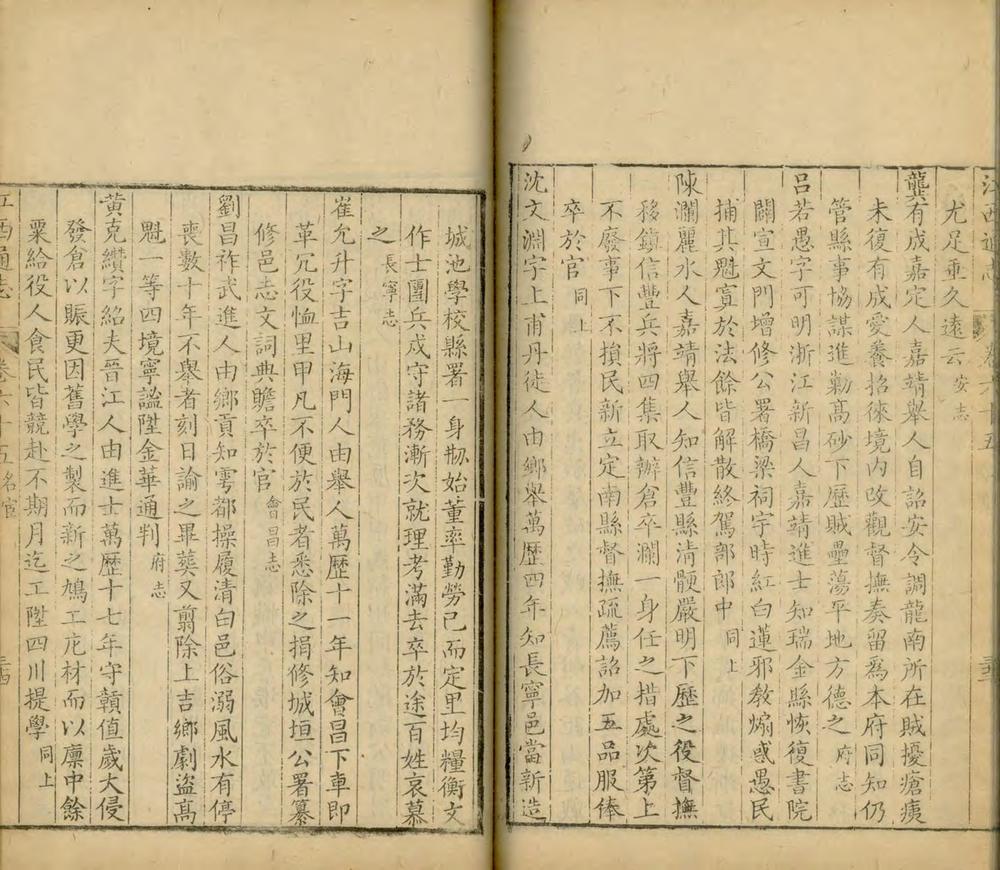 江西通志 卷六十五
尤足垂久遠云安志
龔有成嘉定人嘉靖舉人自詔安令調龍南所在賊擾瘡痍
未復有成愛養招徠境内改觀督撫奏留為本府同知仍
管縣事協謀進勦髙砂下歷賊壘蕩平地方德之府志
吕若愚字可明浙江新昌人嘉靖進士知瑞金縣恢復書院
闢宣文門增修公署橋梁祠宇時紅白蓮邪教煽惑愚民
捕其魁寘於法餘皆解散終駕部郎中同上
陳瀾麗水人嘉靖舉人知信豐縣清骾嚴明下歷之役督撫
移鎮信豐兵將四集取辦倉卒瀾一身任之措處次第上
不廢事下不損民新立定南縣督撫疏薦詔加五品服俸
卒於官同上
沈文淵字上甫丹徒人由鄉舉萬歴四年知長寧邑當新造
城池學校縣署一身剏始董率勤勞已而定里均糧衡文
作士團兵戍守諸務漸次就理考滿去卒於途百姓哀慕
之長寧志
崔允升字吉山海門人由舉人萬歴十一年知會昌下車即
革冗役恤里甲凡不便於民者悉除之捐修城垣公署纂
修邑志文詞典贍卒於官會昌志
劉昌祚武進人由鄉貢知雩都操履清白邑俗溺風水有停
喪數十年不舉者刻日諭之畢葬又翦除上吉鄉劇盜髙
魁一等四境寧謐陞金華通判府志
黄克纘字紹夫晉江人由進士萬歴十七年守贛值歲大侵
發倉以賑更因舊學之製而新之鳩工庀材而以廪中餘
粟給役人食民皆競赴不期月迄工陞四川提學同上
江西通志 卷六十五 名宦